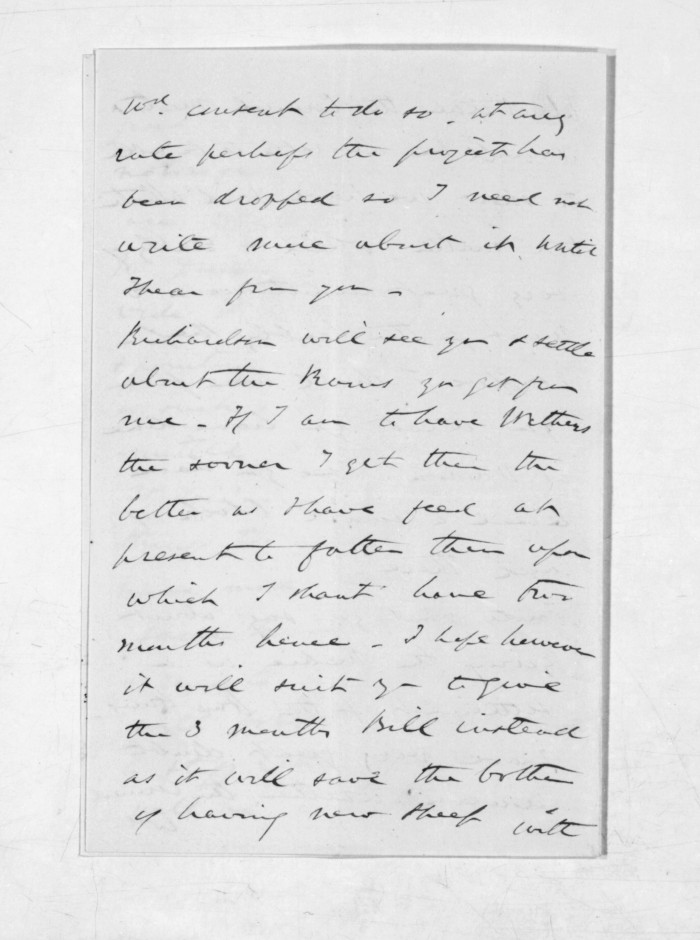 wd. consent to do so - at any
rate perhaps the project has
been dropped so I need not
write more about it until
I hear from you -
Richardson will see you & settle
about the Rams you get from
me - If I am to have Wethers
the sooner I get them the
better as I have feed at
present to fatten them upon
which I shant have two
months hence - I hope however
it will suit you to give
the 3 months Bill instead
as it will save the bother
of having new sheep with